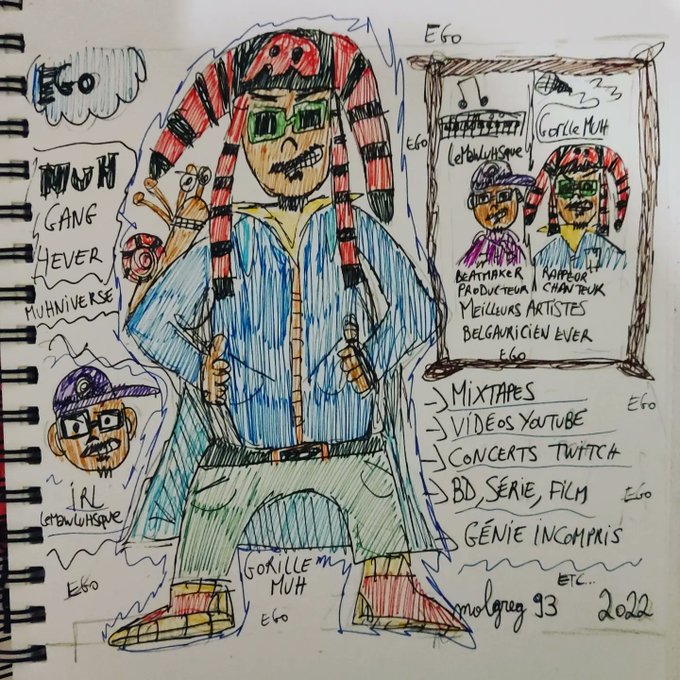 EGO
MUH
GANG
4EVER
MUHNIVERSE
IRL
LeMawLuHSque
EGO
GORILLE
MUH
EGO
EGO
EGO
LeMawLuHSque
Gorille MuH
BEATMAKER
PRODUCTEUR
RAPPEUR
CHANTEUR
MEILLEURS ARTISTES
BELGAURICIEN EVER
EGO
MIXTAPES
EGO
VIDÉOS YOUTUBE
CONCERTS TWITCH
BD, SÉRIE, FILM
EGO
GÉNIE INCOMPRIS
ETC...
molgreg 93
2022